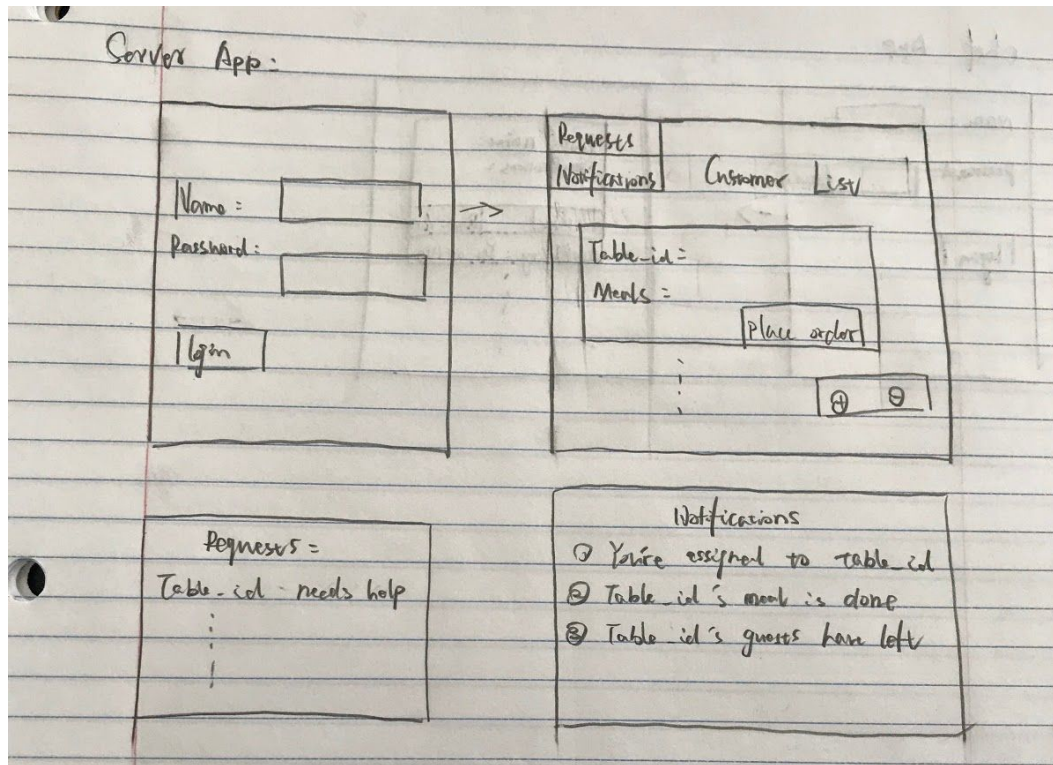 Server App:
Name:
Password:
login
Requests
Notifications
Customer List
Table_id=
Meals=
place order
Requests=
Table_id - needs help
Notifications
① You're assigned to table_id
② Table_id's meal is done
③ Table_id's guests have left